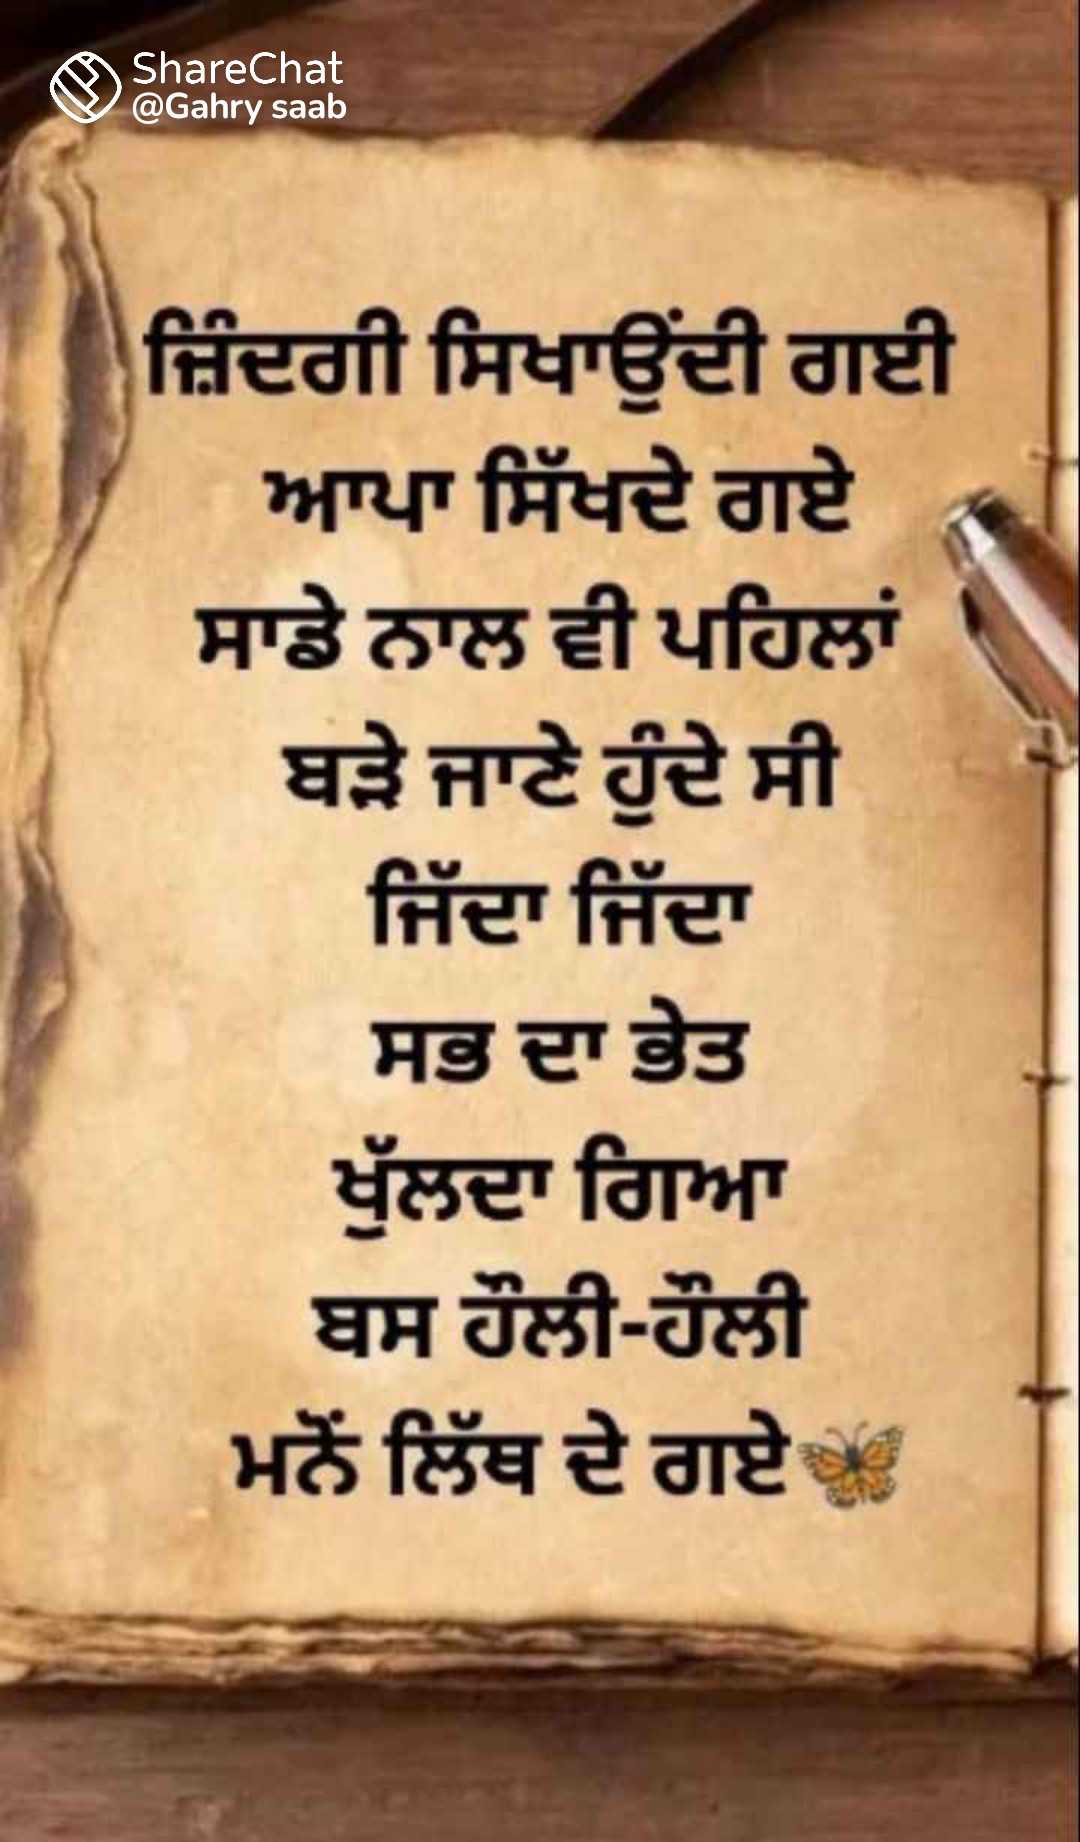 ShareChat
@Gahry saab
ਜ਼ਿੰਦਗੀ ਸਿਖਾਉਂਦੀ ਗਈ
ਆਪਾ ਸਿੱਖਦੇ ਗਏ
ਸਾਡੇ ਨਾਲ ਵੀ ਪਹਿਲਾਂ
ਬੜੇ ਜਾਣੇ ਹੁੰਦੇ ਸੀ
ਜਿੱਦਾ ਜਿੱਦਾ
ਸਭ ਦਾ ਭੇਤ
ਖੁੱਲਦਾ ਗਿਆ
ਬਸ ਹੌਲੀ-ਹੌਲੀ
ਮਨੋਂ ਲਿੱਥ ਦੇ ਗਏ🦋